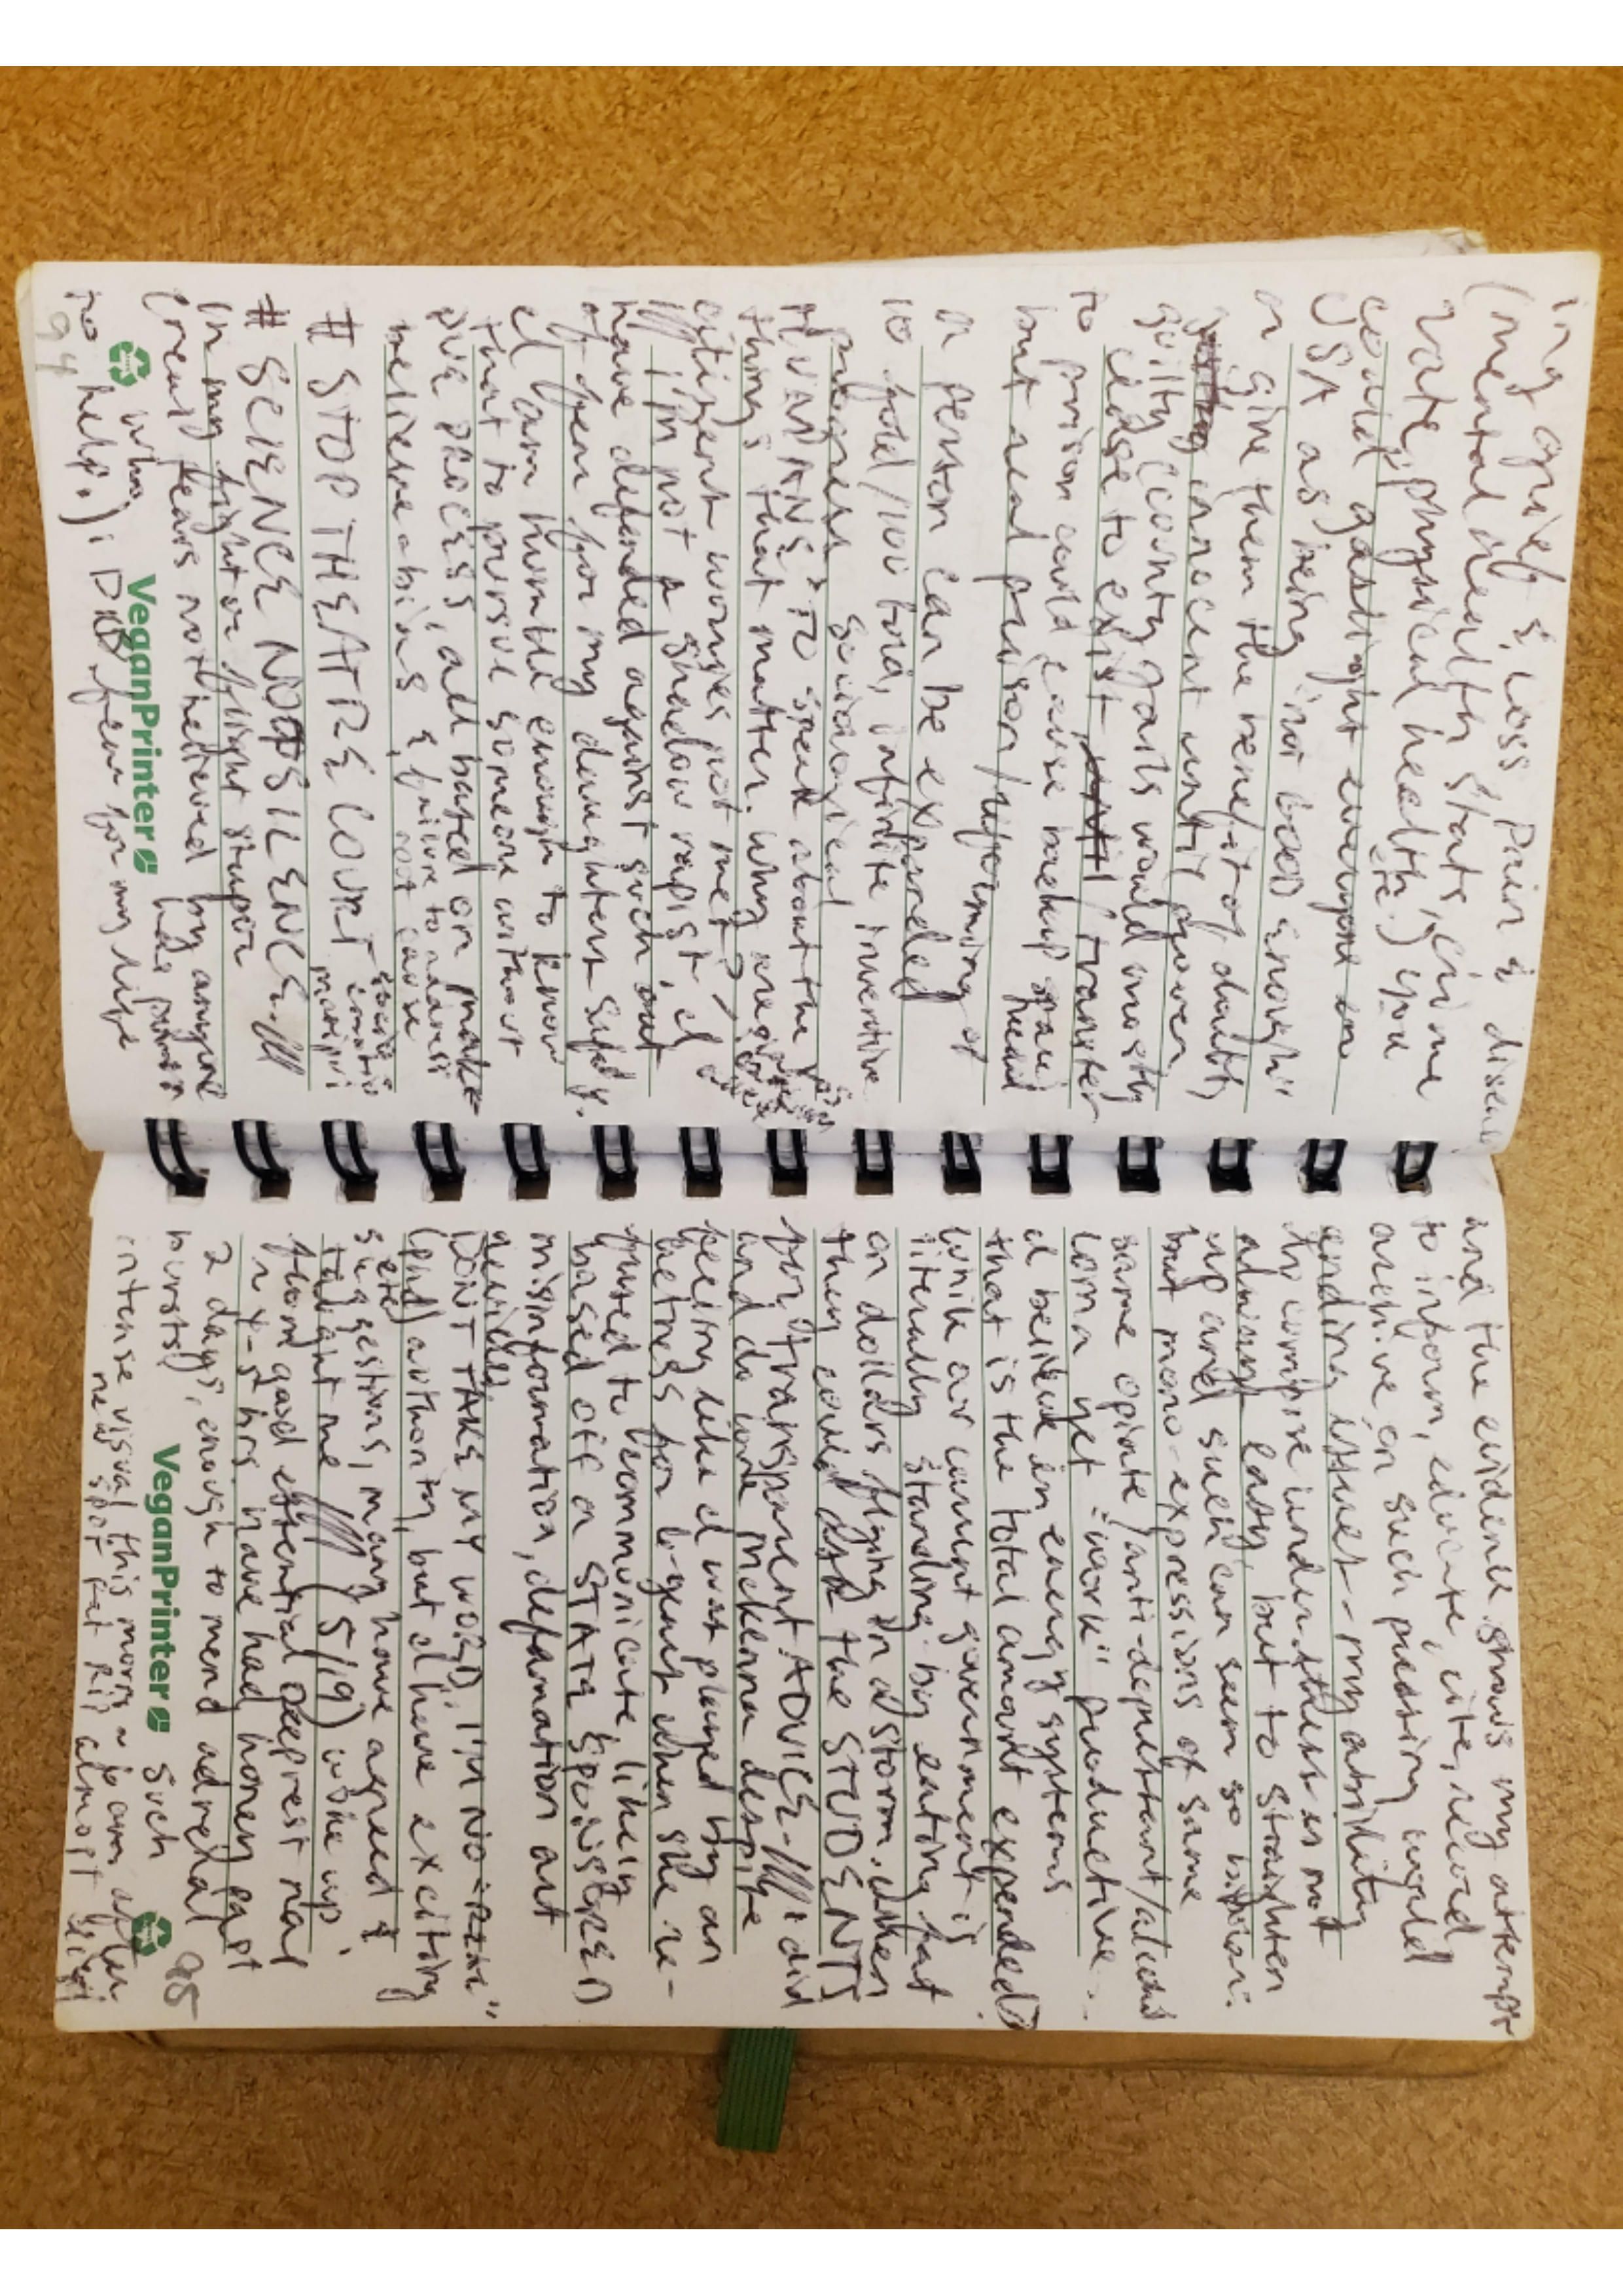 ing grief & loss, pain & disease
(mental health stats, crime
rate, physical health, etc.) you
could gaslight everyone in
USA as being "not good enough"
or give them the benefit of doubt,
innocent until proven
guilty county jails would mostly
cease to exist, / transfer
to prison could cause backup
but real prison/reforming of
a person can be expanded
to full/100 fold, infinite incentive
progress. sociological
HUMANS TO speak about the
things that matter. why are
citizens worries not met?
/// I'm not a shadow rapist, I
have defended against such out
of fear for my daughters safety.
I am humble enough to know
that to pursue someone without
due process, all based on make
believe abians & failure to address
root cause
# STOP THEATRE COURT
# SCIENCE NOT SILENCE ///
In my fight or flight stupor
(real fears not believed by anyone
who has power
to help.) i DID fear for my life
94
VeganPrinter
and the evidence shows my attempt
to inform, educate, cite, record
archive on such pressing world
ending issues - my ability
to compose under stress is not
always easy, but to straighten
up and such can seem so
but mono-expressions of same
same opiate/anti-depressant/
coma yet "work" productive..
I believe in energy systems
that is the total amount expended?
while our current government is
literally standing. big eating fat
on dollars flying in a storm. when
they could ask the STUDENTS
for transparent ADVICE - /// I did
and do love McKenna despite
feeling like I was played by an
actress for a-gent when she re-
fused to communicate, likely
based off a STATE SPONSORED
misinformation, defamation art
devices.
DON'T TAKE MY WORD, I'M NO
(phd) authority, but I have exciting
etc)
suggestions, many have agreed &
taught me /// 5/19) woke up,
~ 4-5 hrs. have had honey past
2 days, enough to mend adrenal
bursts) such
intense visual this morn ~ 10 am after
new spot that Ril almost
95
VeganPrinter